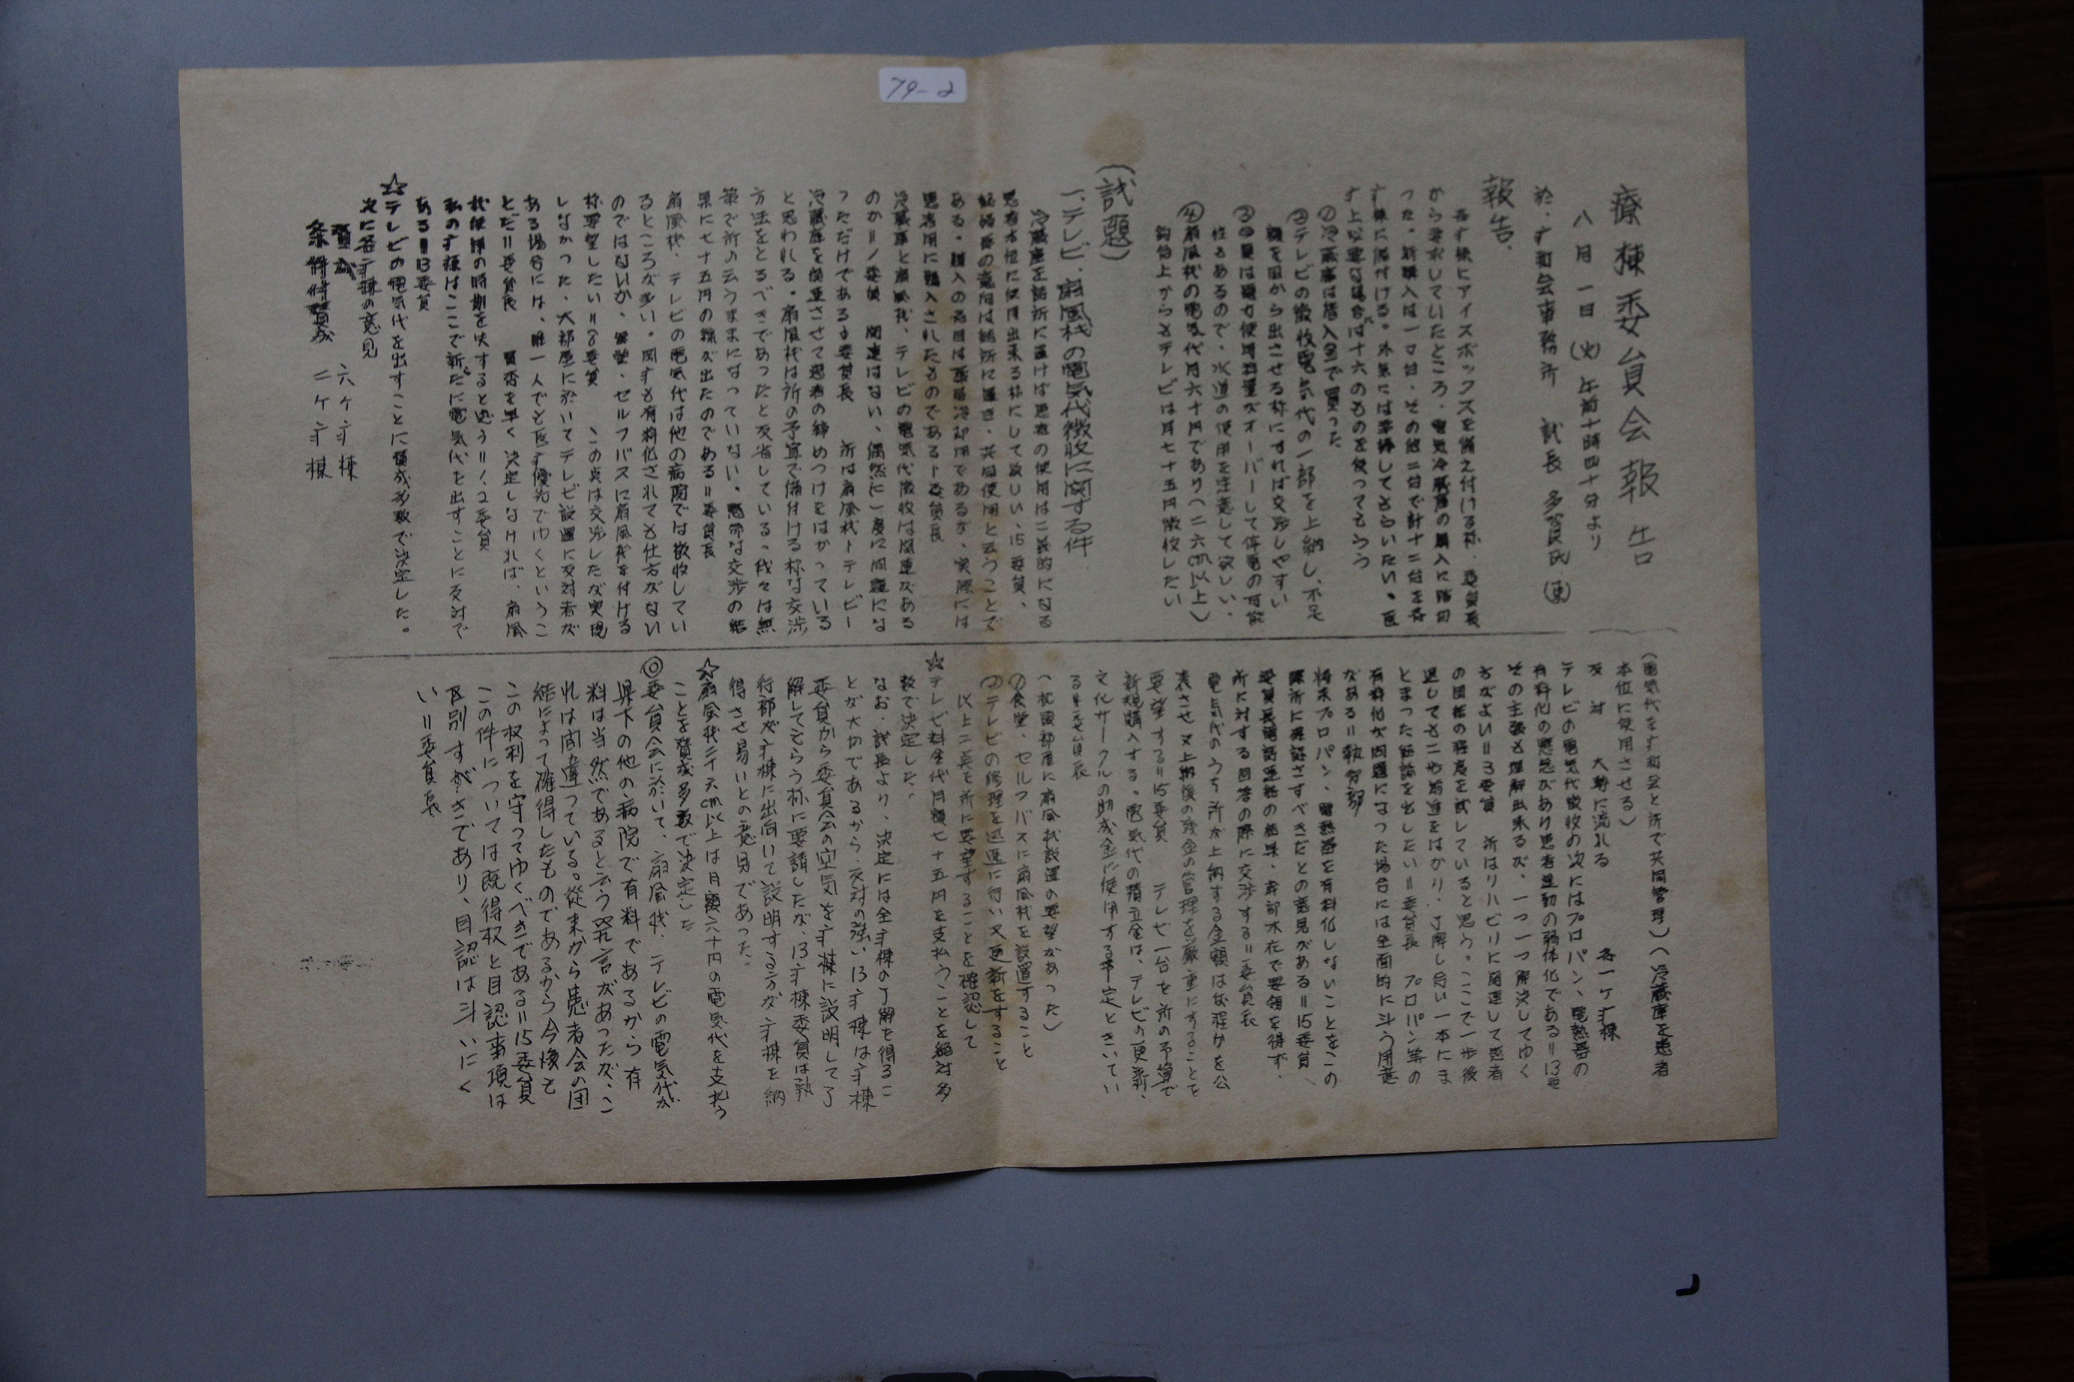 79-2
療棟委員会報告
八月一日(火)午前十時四十分より
於・疒和会事務所 議長 多賀良氏(東)
報告.
各疒棟にアイスボックスを備え付ける様、委員長
から要求していたところ、電気冷蔵庫の購入に踏切
った。新購入は一〇台、その他二台で計十二台を各
疒棟に備付ける。外気には準備してもらいたい。医
①冷蔵庫は居入金で買った
②テレビの徴收電気代の一部を上納し、不足
額を国から出させる様にすれば交渉しやすい
③今夏は電力使用料量がオーバーして停電の可能
性もあるので、水道の使用を注意して欲しい。
④扇風機の電気代月六十円であり(二六cm以上)
釣合上からもテレビは月七十五円徴收したい
(議題)
一、テレビ、扇風機の電気代徴收に関する件
冷蔵庫を詰所に置けば患者の使用は二義的になる
患者本位に使用出来る様にして欲しい、15委員、
ある。購入の名目は薬品冷却用であるが、実際には
患者用に購入されたものである=委員長
冷蔵庫と扇風機、テレビの電気代徴收は関連がある
のか=ノ委員 関連はない、偶然に一度に問題にな
っただけである=委員長 所は扇風機→テレビ→
冷蔵庫を関連させて患者の締めつけをはかっている
と思われる。扇風機は所の予算で備付ける様な交渉
方法をとるべきであったと反省している。我々は無
策で所の云うままになっていない。慎重な交渉の結
果に七十五円の線が出たのである=委員長
扇風機、テレビの電気代は他の病院では徴收してい
るところが多い。関する有料化されても仕方がない
のではないか、食堂、セルフバスに扇風機を付ける
様要望したい=8委員 この点は交渉したが実現
しなかった、大部屋に於いてテレビ設置に反対者が
ある場合には、唯一人でも医疒優先でゆくというこ
とだ=委員長 賛否を早く決定しなければ、扇風
機使用の時期を失すると思う=12委員
私の疒棟はここで新たに電気代を出すことに反対で
ある=13委員
☆テレビの電気代を出すことに賛成多数で決定した。
次に各疒棟の意見
賛成 六ヶ疒棟
条件付賛成 二ヶ疒棟
(電気代を疒和会と所で共同管理)(冷蔵庫を患者
本位に使用させる)
反対 大勢に流れる 各一ヶ疒棟
テレビの電気代徴收の次にはプロパン、電熱器の
有料化の懸念があり患者運動の弱体化である=13委
その主張も理解出来るが、一つ一つ解決してゆく
方がよい=3委員 所はリハビリに関連して患者
の団結の程度を試していると思う。ここで一歩後
退しても二や前進をはかり、了解し合い一本にま
とまった結論を出したい=委員長 プロパン等の
有料化が問題になった場合には全面的に斗う用意
がある=執行部
将来プロパン、電熱器を有料化しないことをこの
際所に確認さすべきだとの意見がある=15委員
委員長電話連絡の結果、幹部不在で要領を得ず、
所に対する回答の際に交渉する=委員長
電気代のうち所が上納する金額は何程かを公
表させ又上納後の残金の管理を厳重にすることを
要望する=15委員 テレビ一台を所の予算で
新規購入する。電気代の積立金は、テレビの更新、
文化サークルの助成金に使用する予定ときいてい
る=委員長
(松田部屋に扇風機設置の要望があった)
①食堂、セルフバスに扇風機を設置すること
②テレビの修理を迅速に行い又更新をすること
以上二点を所に要望することを確認して
☆テレビ料金代月額七十五円を支払うことを絶対多
数で決定した。
なお、議長より、決定には全疒棟の了解を得るこ
とが大切であるから、反対の強い13疒棟は疒棟
委員から委員会の空気を疒棟に説明して了
解してもらう様に要請したが、13疒棟委員は執
行部が疒棟に出向いて説明する方が疒棟を納
得させ易いとの意見であった。
☆扇風機二十六cm以上は月額六十円の電気代を支払う
ことを賛成多数で決定した
◎委員会に於いて、扇風機、テレビの電気代が
県下の他の病院で有料であるから有
料は当然であると云う発言があったが、こ
れは間違っている。従来から患者会の団
結によって獲得したものであるから今後も
この权利を守ってゆくべきである=15委員
この件については既得权と目認事項は
区別すべきであり、目認は斗いにく
い=委員長